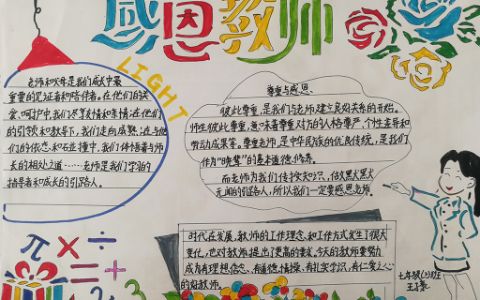 感恩教师
LIGHT
老师和父母是我们成长最
重要的见证者和陪伴者。在他们的关
爱、呵护中,我们尽享友情和亲情;在他们
的引领和教导下,我们走向成熟;在与他
们的依恋和碰撞中,我们体悟着与师
长的相处之道……老师是我们学习的
指导者和成长的引路人。
尊重与感恩
彼此尊重,是我们与老师建立良好关系的开始。
师生彼此尊重,意味着尊重对方的人格尊严、个性差异和
劳动成果等。尊重老师,是中华民族的优良传统,是我们
作为"晚辈"的基本道德修养。
而老师为我们传授知识,
的引路人,所以我们一定要感恩老师。
时代在发展,教师的工作理念、和工作方式发生了很大
变化,也对教师提出了更高的要求,今天的教师要努力
成为有理想信念、有道德情操、有扎实学识、有仁爱之心
的好教师。
π × ÷
+ 2 =
七年级